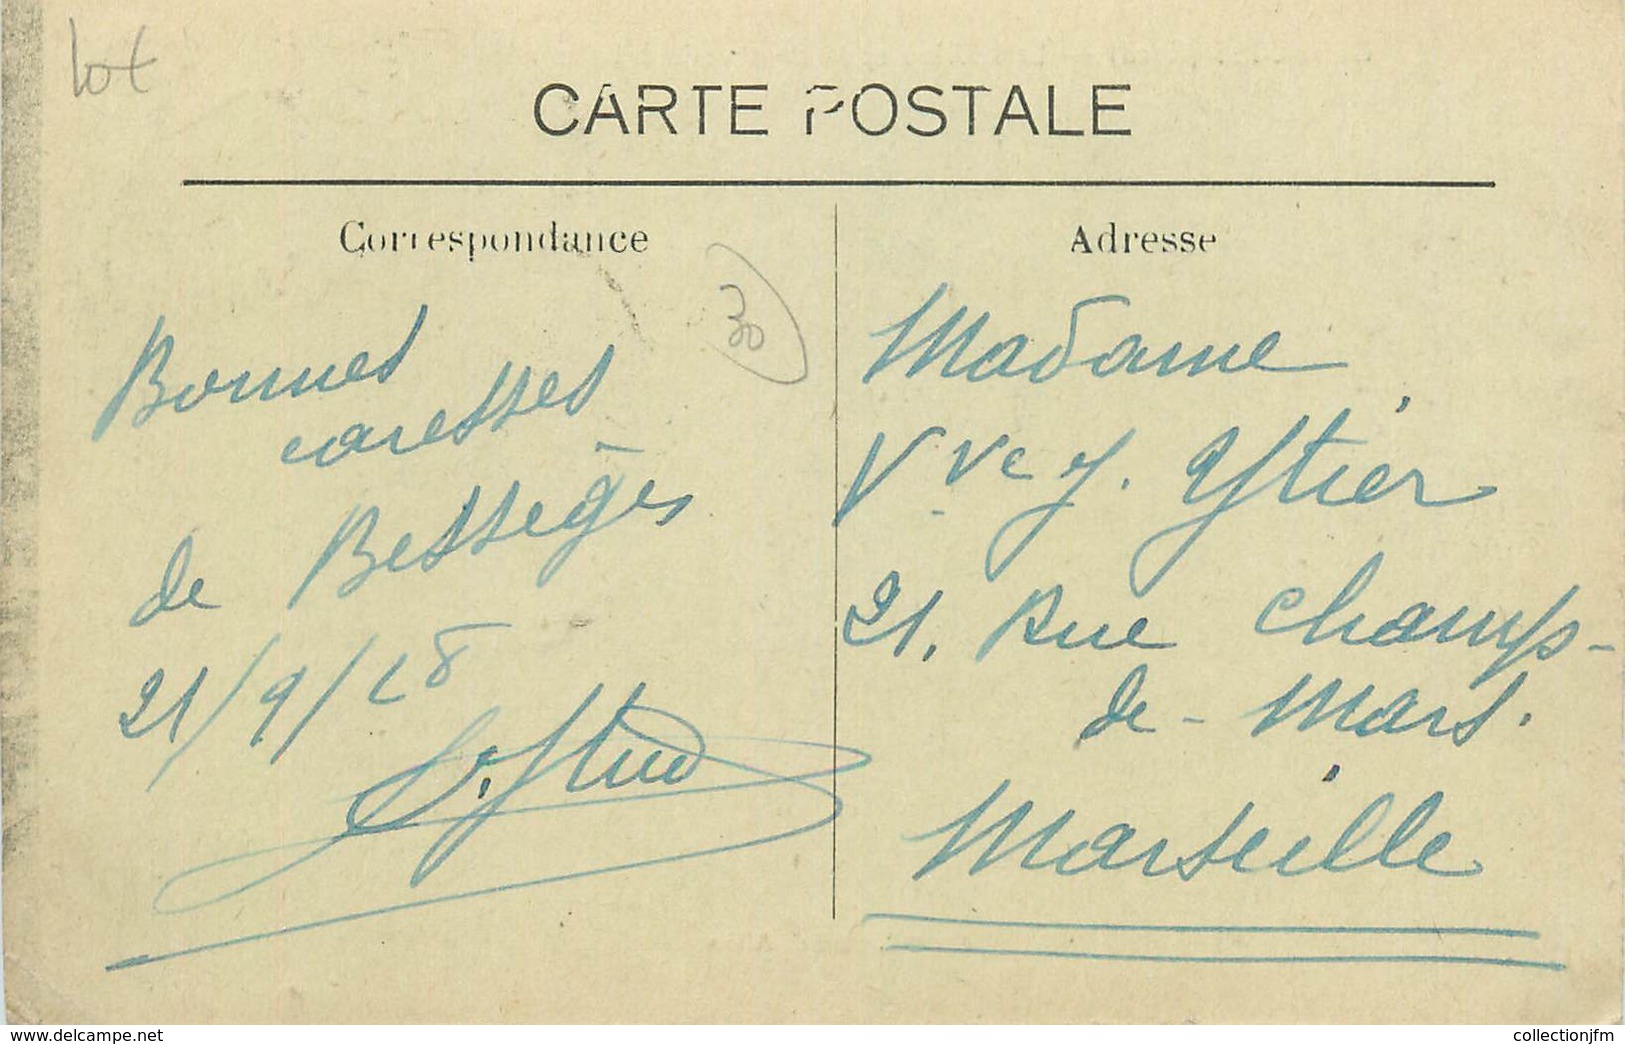 lot
CARTE POSTALE
Correspondance
30
Bonnes
caresses
de Bessèges
21/9/28
Adresse
Madame
Vve J. Ystier
21, Rue Champ-
de-Mars.
Marseille
www.delcampe.net
collectionjfm